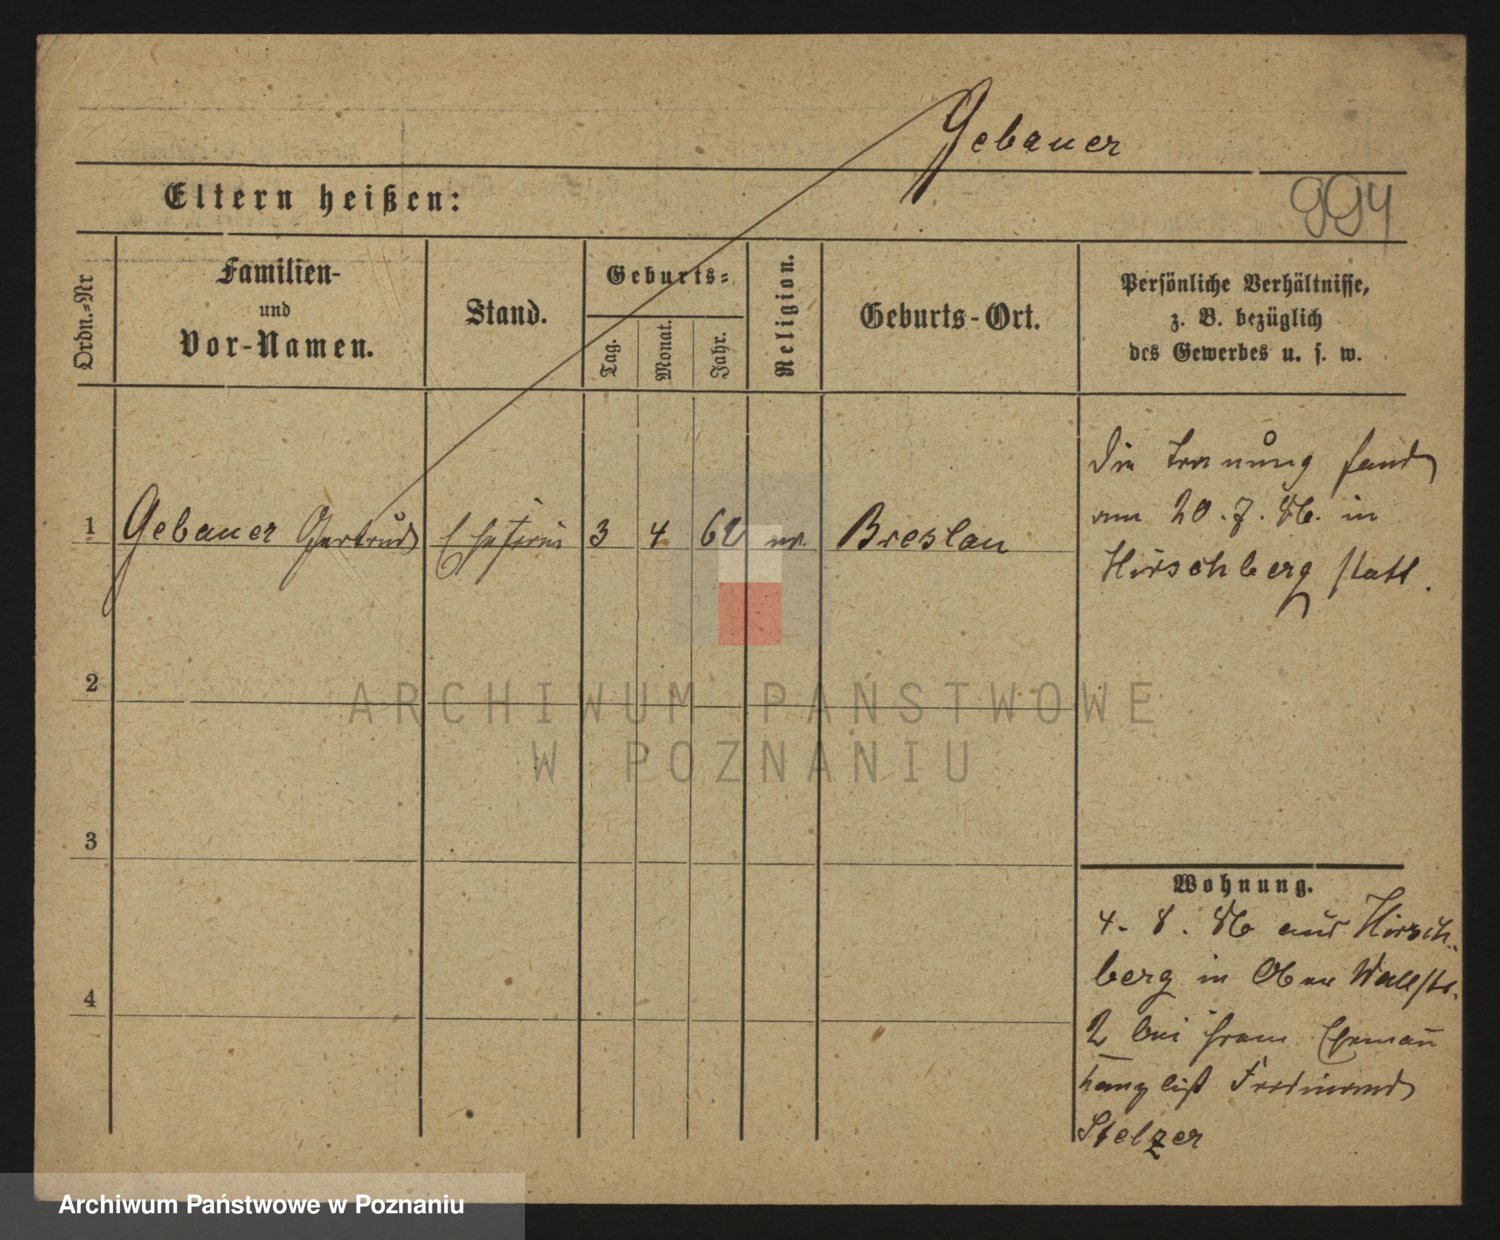 Gebauer
Eltern heißen:
994
Ordn.-Nr
Familien-
und
Vor-Namen.
Stand.
Geburts-
Tag.
Monat.
Jahr.
Religion.
Geburts-Ort.
Persönliche Verhältnisse,
z. B. bezüglich
des Gewerbes u. s. w.
1 Gebauer Gertrud Ehefrau 3 4 62 Breslau
Die Trauung fand
am 20. 7. 86. in
Hirschberg statt.
2
3
4
Wohnung.
4. 8. 86 aus Hirsch-
berg in Ober Wallstr.
2 bei ihrem Ehemañ
Kanzlist Ferdinand
Stelzer
ARCHIWUM PAŃSTWOWE
W POZNANIU
Archiwum Państwowe w Poznaniu